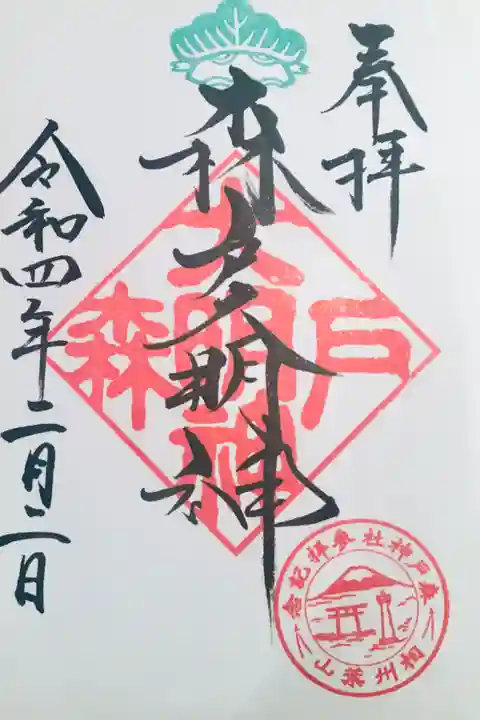 奉拝
森戸大明神
令和四年二月二日
森戸大明神
森戸神社参拝記念
相州葉山